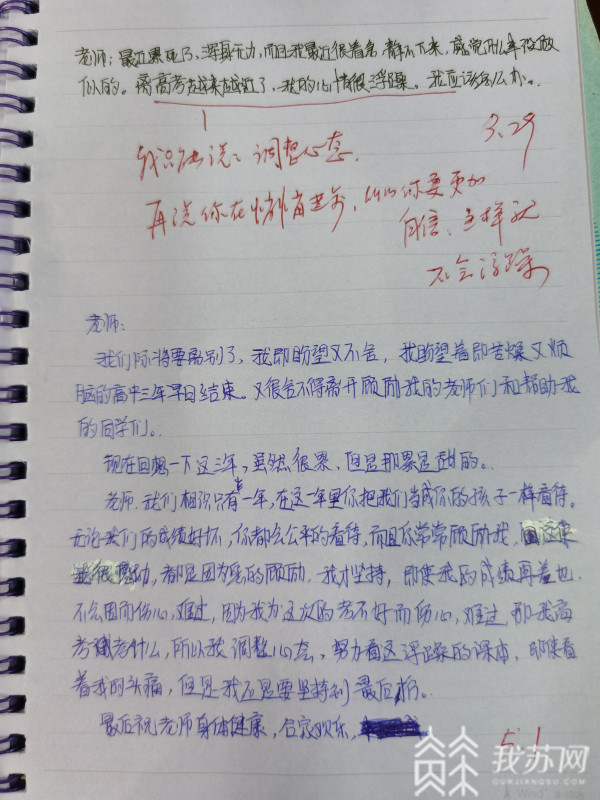 老师：最近累死了，浑身无力，而且我最近很着急，静不下来，感觉什么都没做
似的。离高考越来越近了，我的心情很浮躁。我应该怎么办。
我只能说：调整心态.
3.29
再说你在
你要更加
自信、这样就
不会浮躁
老师：
我们际将要离别了，我即盼望又不舍，我盼望着即苦燥又烦
脑的高中三年早日结束。又很舍不得离开顾励我的老师们和帮助我
的同学们。
现在回想一下这三年，虽然很累，但是那累是甜的。
老师，我们相识只有一年，在这一年里你把我们当成你的孩子一样看待。
无论我们的成绩好坏，你都会公平的看待，而且你常常顾励我，
都是因为您的顾励，我才坚持，即使我的成绩再差也
不会因而伤心，难过，因为我为这次的考不好而伤心，难过，那我高
考考什么，所以我调整心态，努力看这浮躁的课本，即使看
着我的头痛，但是我还是要坚持到最后
最后祝老师身体健康，合家欢乐，
5.1
我苏网
OURJIANGSU.COM